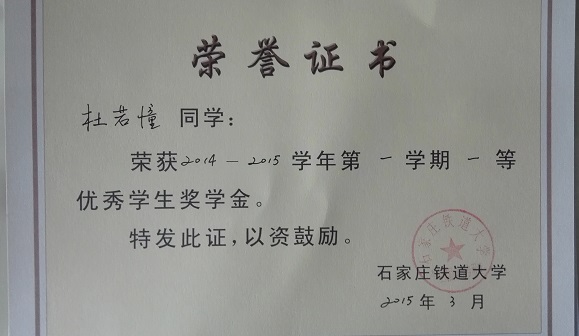 荣誉证书
杜若憧 同学：
荣获2014－2015学年第一学期一等
优秀学生奖学金。
特发此证，以资鼓励。
石家庄铁道大学
石家庄铁道大学
2015年3月